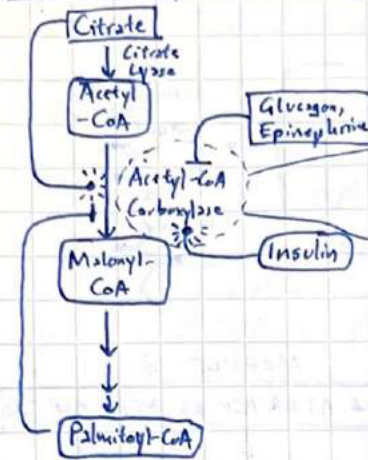 Citrate
Citrate
Lyase
Acetyl
-CoA
Glucagon,
Epinephrine
Acetyl-CoA
Carboxylase
Malonyl-
CoA
Insulin
Palmitoyl-CoA